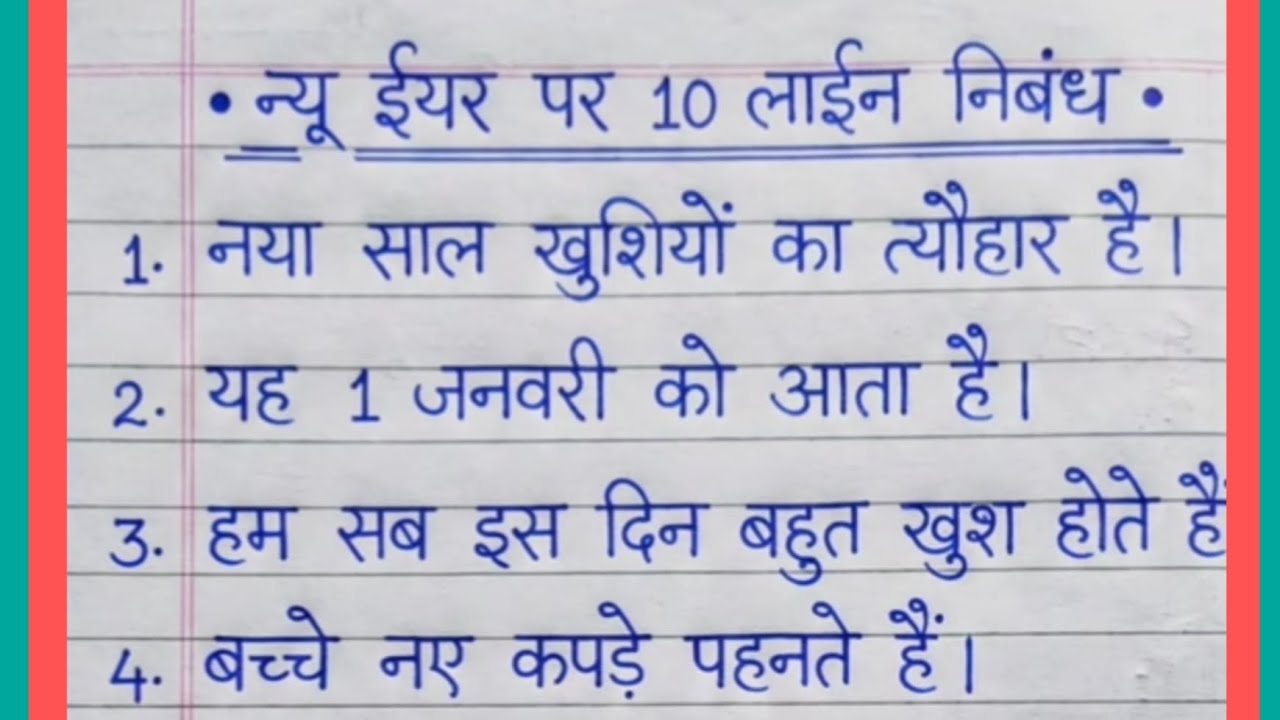 • न्यू ईयर पर 10 लाईन निबंध •
1. नया साल खुशियों का त्यौहार है।
2. यह 1 जनवरी को आता है।
3. हम सब इस दिन बहुत खुश होते हैं
4. बच्चे नए कपड़े पहनते हैं।